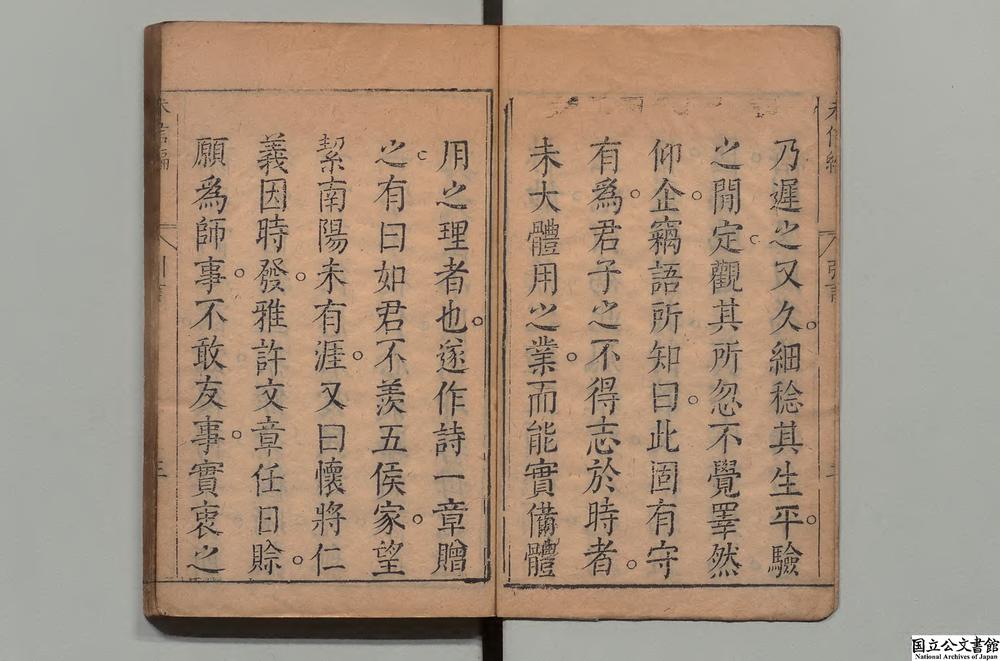 乃遲之又久。細稔其生平。驗
之閒定。觀其所忽不覺睪然
仰企。竊語所知曰。此固有守
有爲。君子之不得志於時者。
未大體用之業。而能實備體
用之理者也。遂作詩一章贈
之。有曰如君不羨五侯家。望
絜南陽未有涯。又曰懷將仁
義因時發。雅許文章任日賒。
願爲師事。不敢友事。實衷之
国立公文書館
National Archives of Japan